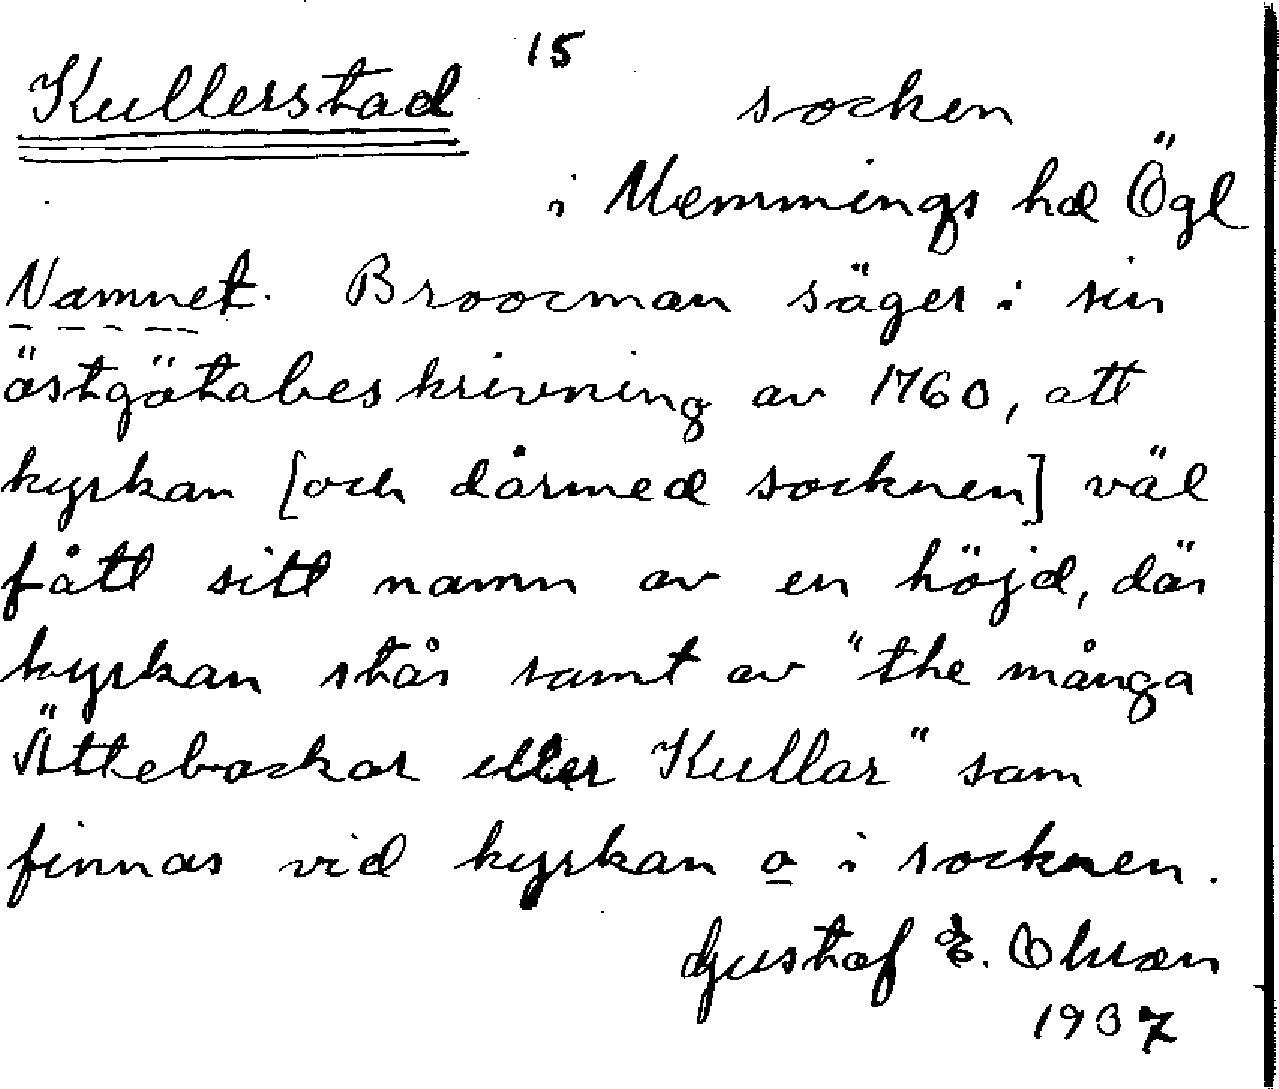 15
Kullerstad socken
i Memmings hd Ögl
Namnet. Broocman säger i sin
östgötabeskrivning av 1760, att
kyrkan [och därmed socknen] väl
fått sitt namn av en höjd, där
kyrkan står samt av "the många
Ättebackar eller Kullar" som
finnas vid kyrkan o i socknen.
Gustaf E. Olsson
1937